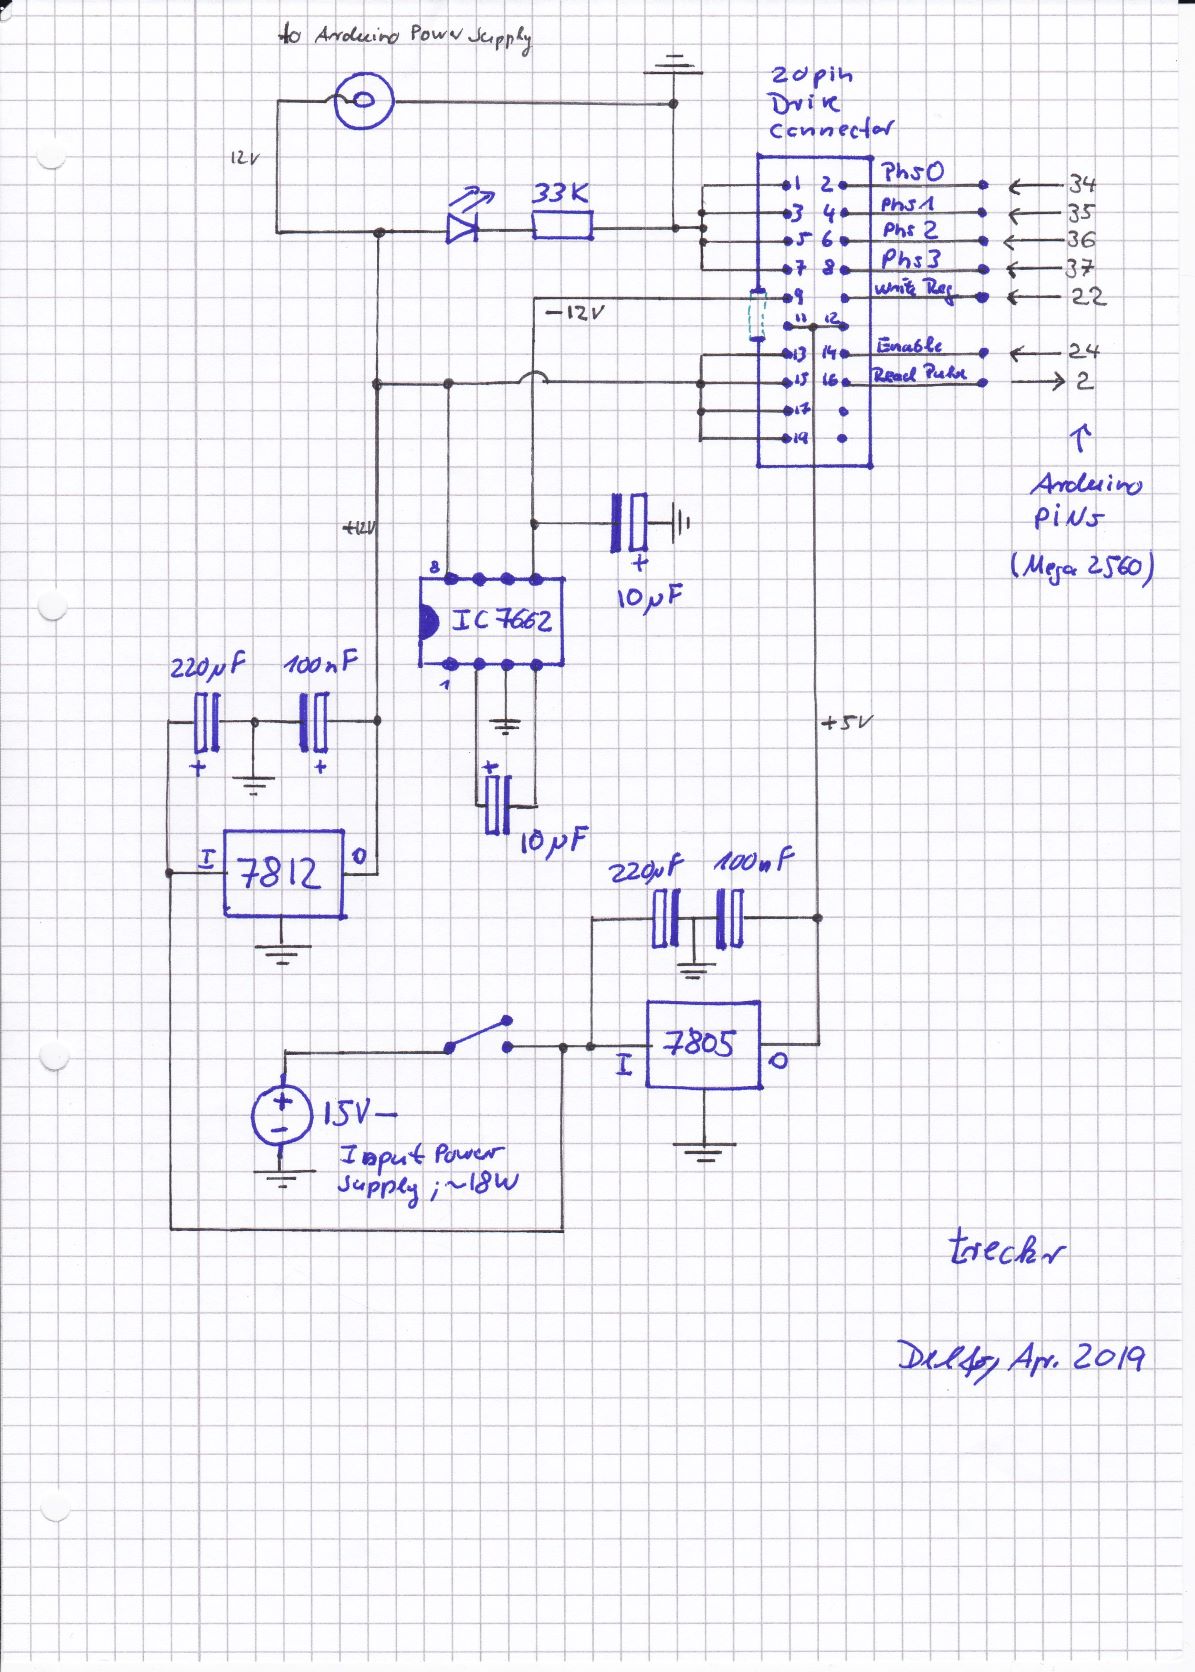 to Arduino Power Supply
20pin
Drive
Connector
12V
33K
1 2 Phs0 34
3 4 Phs1 35
5 6 Phs2 36
7 8 Phs3 37
9 Write Req 22
-12V
11 12
13 14 Enable 24
15 16 Read Pulse 2
17
19
Arduino
PiNs
(Mega 2560)
+12V
8
IC 7662
+
10µF
1
220µF 100nF
+ +
+
10µF
+5V
I 7812 O
220µF 100nF
7805
I O
+
-
15V-
Input Power
Supply; ~18W
treckr
Apr. 2019